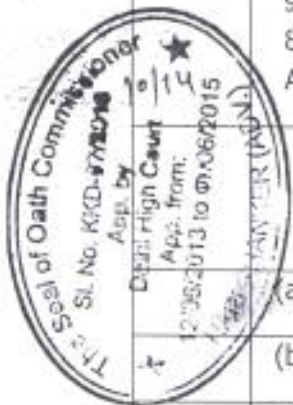 The Seal of Oath Commissioner
10/14
Sl. No. KKD-
App. by
Delhi High Court
App. from:
12/06/2013 to 01/06/2015
(ADV.)
8
A
(a
(b